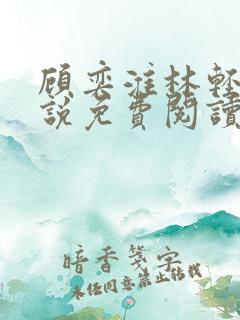 顾奕淮林轻
說免費閱讀
暗香箋字
未经同意禁止转载